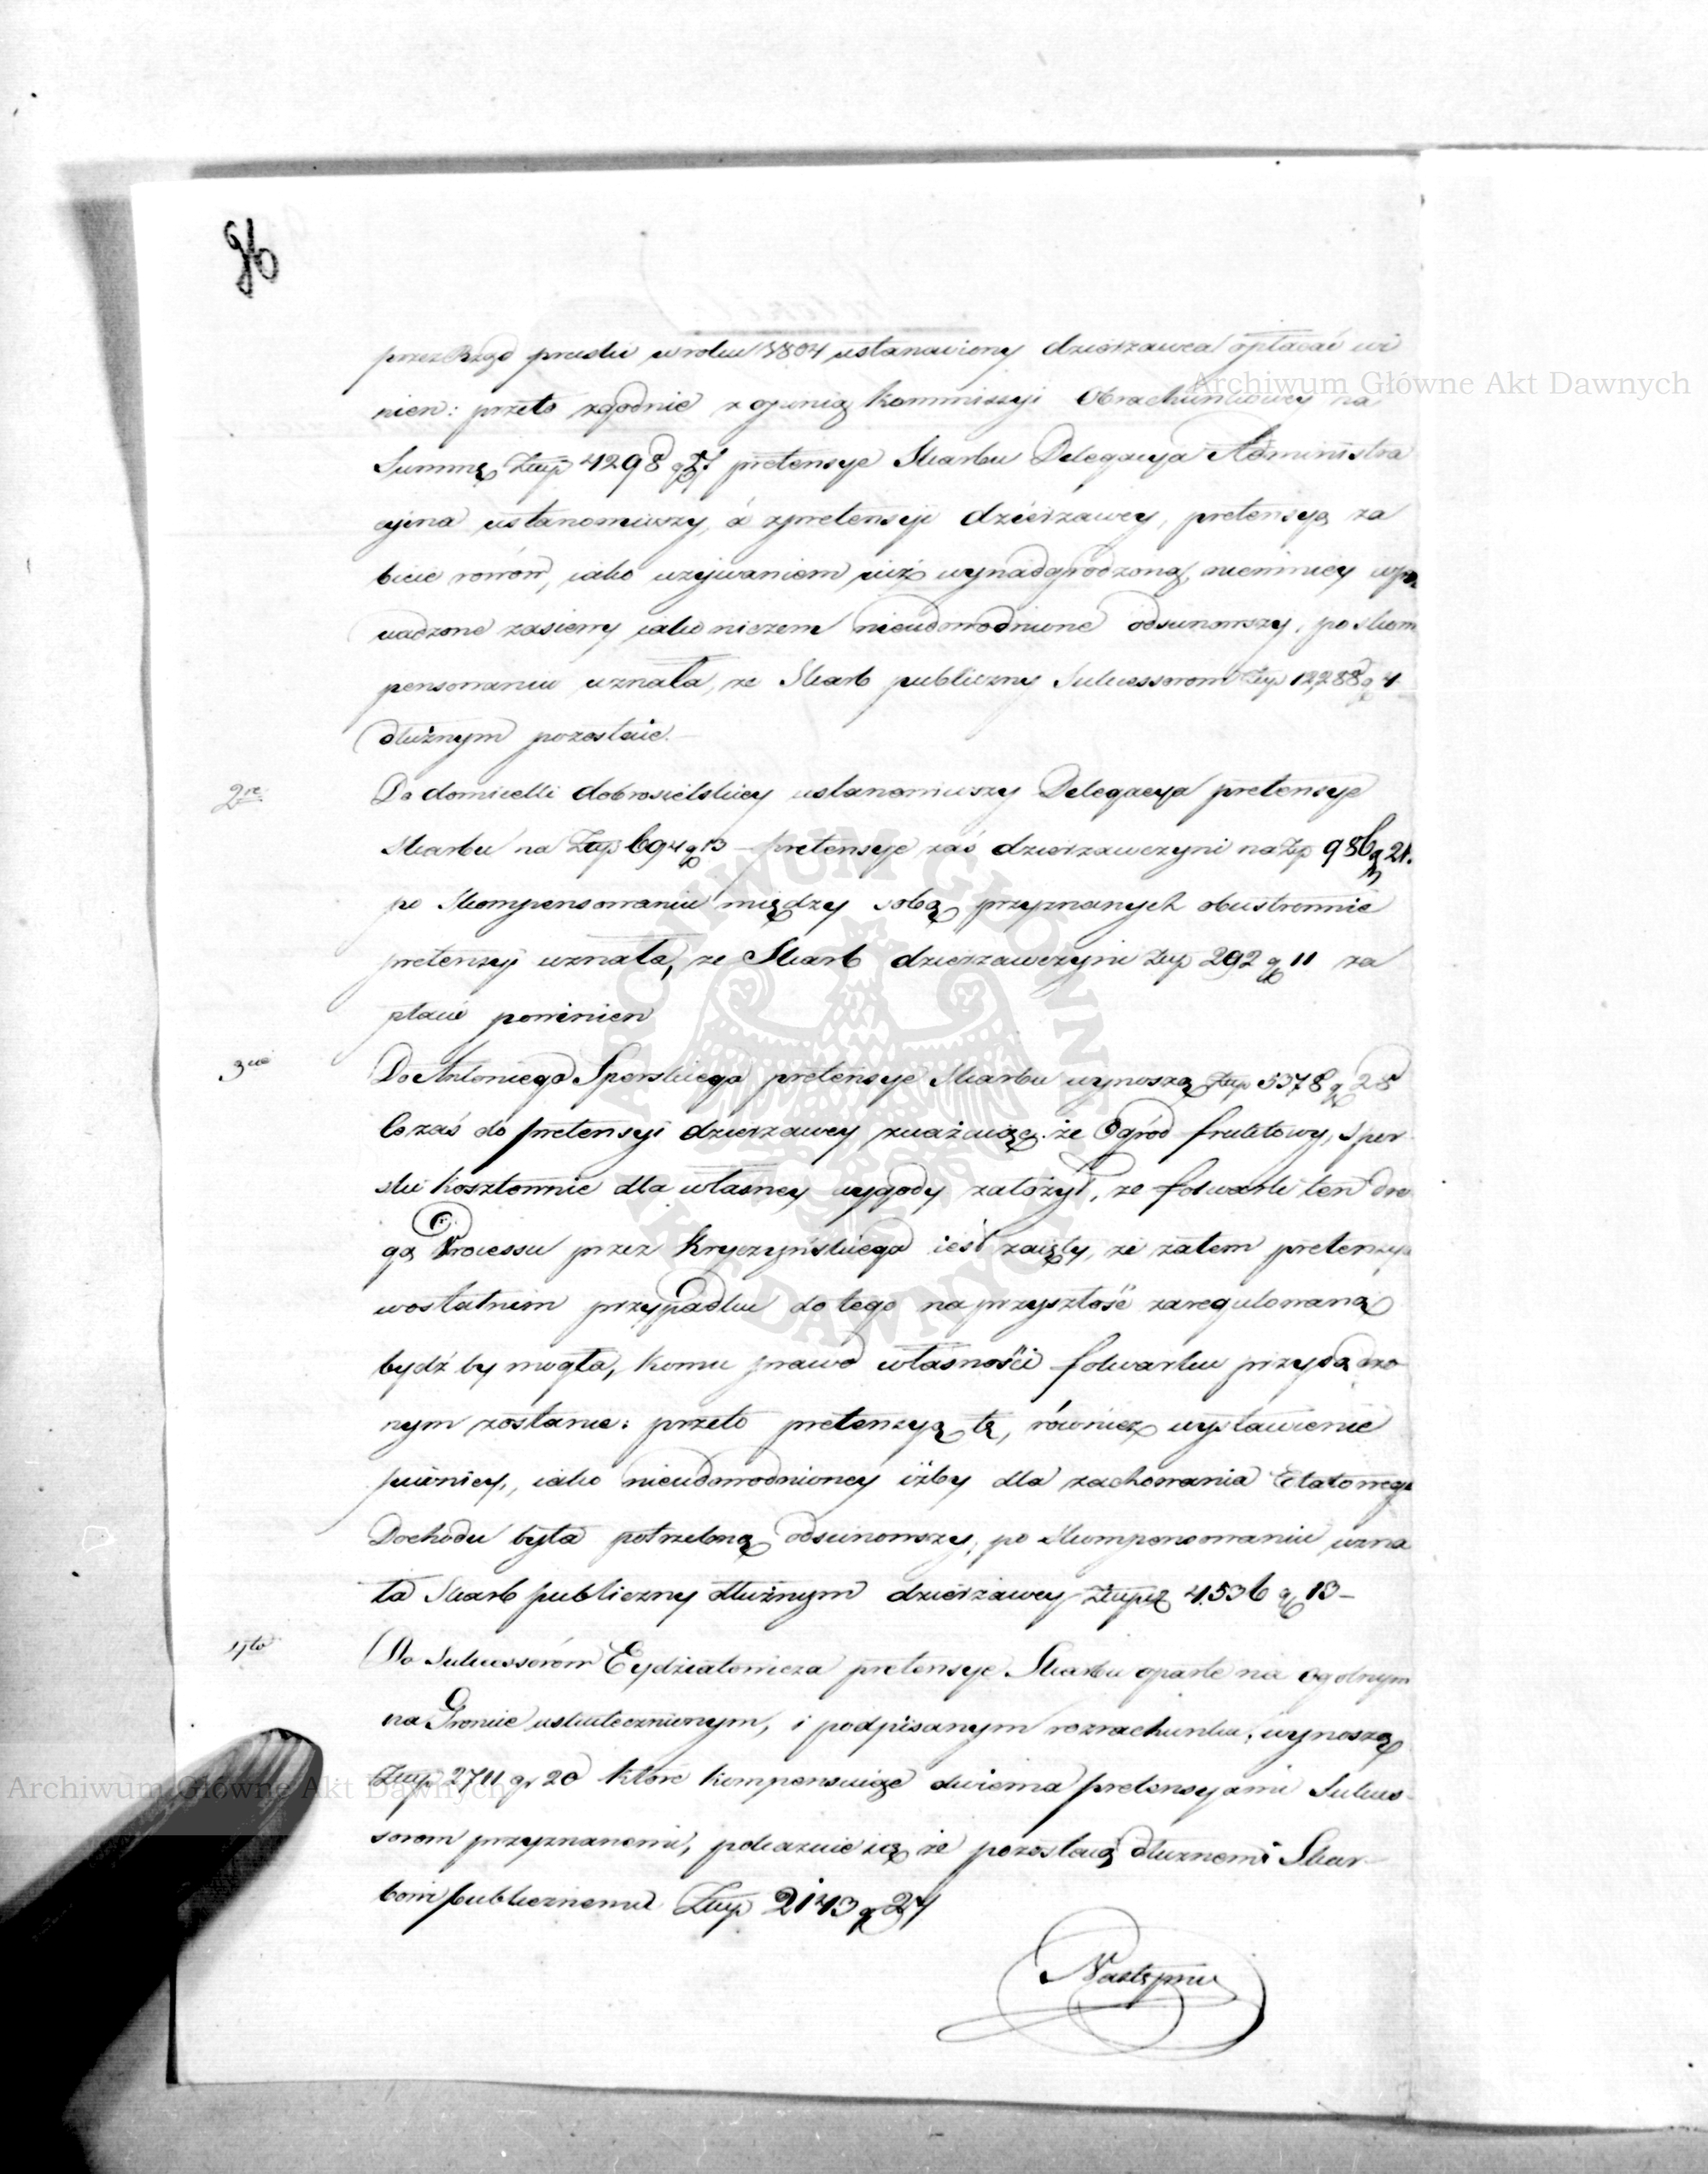 96
przez Rząd pruski w roku 1804 ustanowiony dzierzawca opłacać wi
nien: przeto zgodnie z opinią Kommissyi Obrachunkowey na
Archiwum Główne Akt Dawnych
Summę Złup 4298 g pretensye Skarbu Delegacya Administra
cyina ustanowiwszy, á z pretensyi dzierzawcy, pretensyą za
bicie rowów, iako uzywaniem iuż wynadgrodzoną, niemniey upo
wadzone zasiewy iako niczem nieudowodnione odsunowszy, po skom
pensowaniu uznała, ze Skarb publiczny Sukcessorom Złup 12,288 g 4
dłużnym pozostaie.
2re
Do domicelli dobrosielskiey ustanowiwszy Delegacya pretensye
Skarbu na Złup 694 g 13 – pretensye zaś dzierzawczyni na Złp 986 g 24.
po skompensowaniu między sobą przyznanych obustronnie
pretensyi uznała, ze Skarb dzierzawczyni Złup 292 g 11 za
płacić powinien
3cie
Do Antoniego Sperskiego pretensye Skarbu wynoszą Złup 5378 g 28
Co zaś do pretensyi dzierzawcy zważaiąc: że Ogród fruktowy, Sper
ski kosztownie dla własney wygody założył, ze folwark ten dro
gą Processu przez Kryczyńskiego iest zaięty, ze zatem pretensya
w ostatnim przypadku do tego na przyszłość zaregulowaną
bydź by mogła, komu prawo własności folwarku przysądzo
nym zostanie: przeto pretensyą tę, również wystawienie
piwnicy, iako nieudowodnioney iżby dla zachowania Etatowego
Dochodu była potrzebną odsunowszy, po skompensowaniu uzna
ła Skarb publiczny dłużnym dzierżawcy Złup 4.536 g 13 –
4to
Do Sukcessorów Eydziatowicza pretensye Skarbu oparte na ogolnym
na Gruncie uskutecznionym, i podpisanym rozrachunku, wynoszą
Złup 2711 gr 20 które kompensuiąc dwiema pretensyami Sukces
Archiwum Główne Akt Dawnych
sorom przyznanemi, pokazuie się że pozostaią dłuznemi Skar
bowi publicznemu Złup 2143 g 24
Następnie
ARCHIWUM GŁÓWNE AKT DAWNYCH